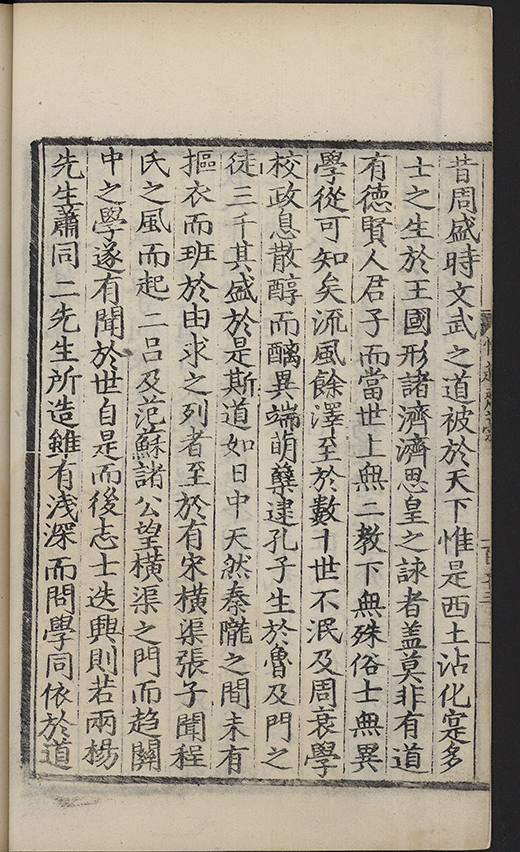 昔周盛時文武之道被於天下惟是西土沾化寔多
士之生於王國形諸濟濟思皇之詠者盖莫非有道
有德賢人君子而當世上無二教下無殊俗士無異
學從可知矣流風餘澤至於數十世不泯及周衰學
校政息散醇而醨異端萌孽逮孔子生於魯及門之
徒三千其盛於是斯道如日中天然秦隴之間未有
摳衣而班於由求之列者至於有宋橫渠張子聞程
氏之風而起二吕及范蘇諸公望橫渠之門而趋關
中之學遂有聞於世自是而後志士迭興則若兩楊
先生蕭同二先生所造雖有浅深而問學同依於道